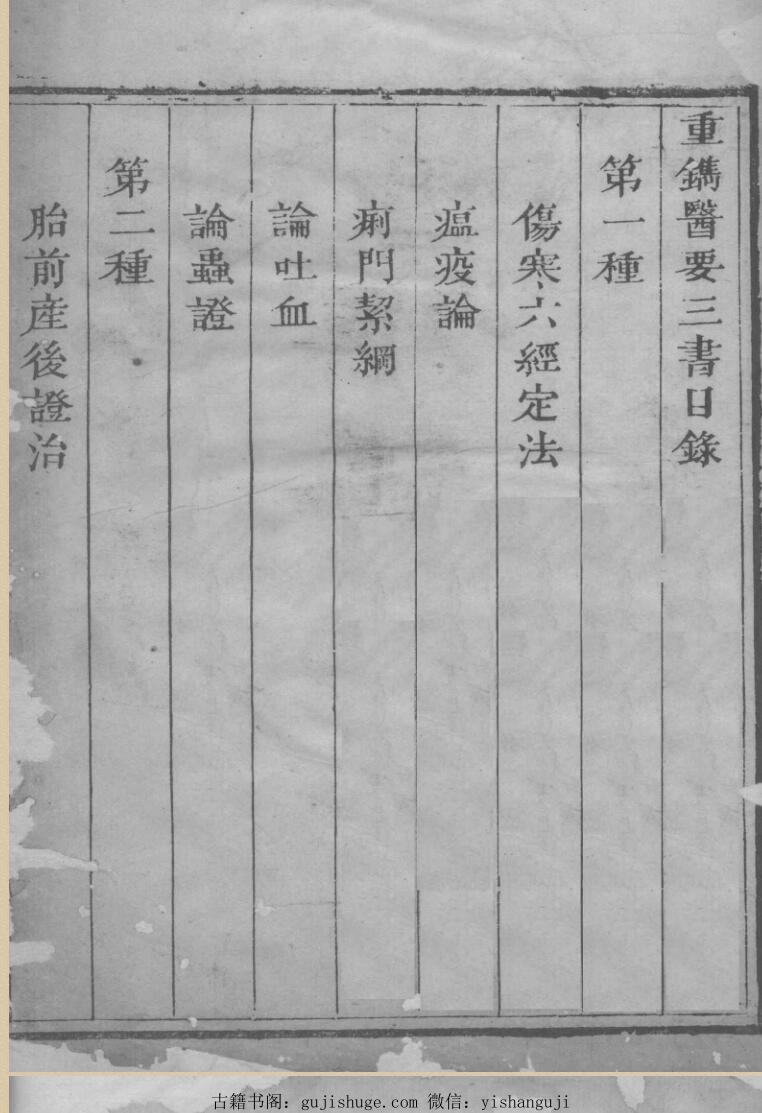 重鐫醫要三書目錄
第一種
傷寒六經定法
瘟疫論
痢門絜綱
論吐血
論蟲證
第二種
胎前産後證治
古籍书阁：gujishuge.com 微信：yishanguji